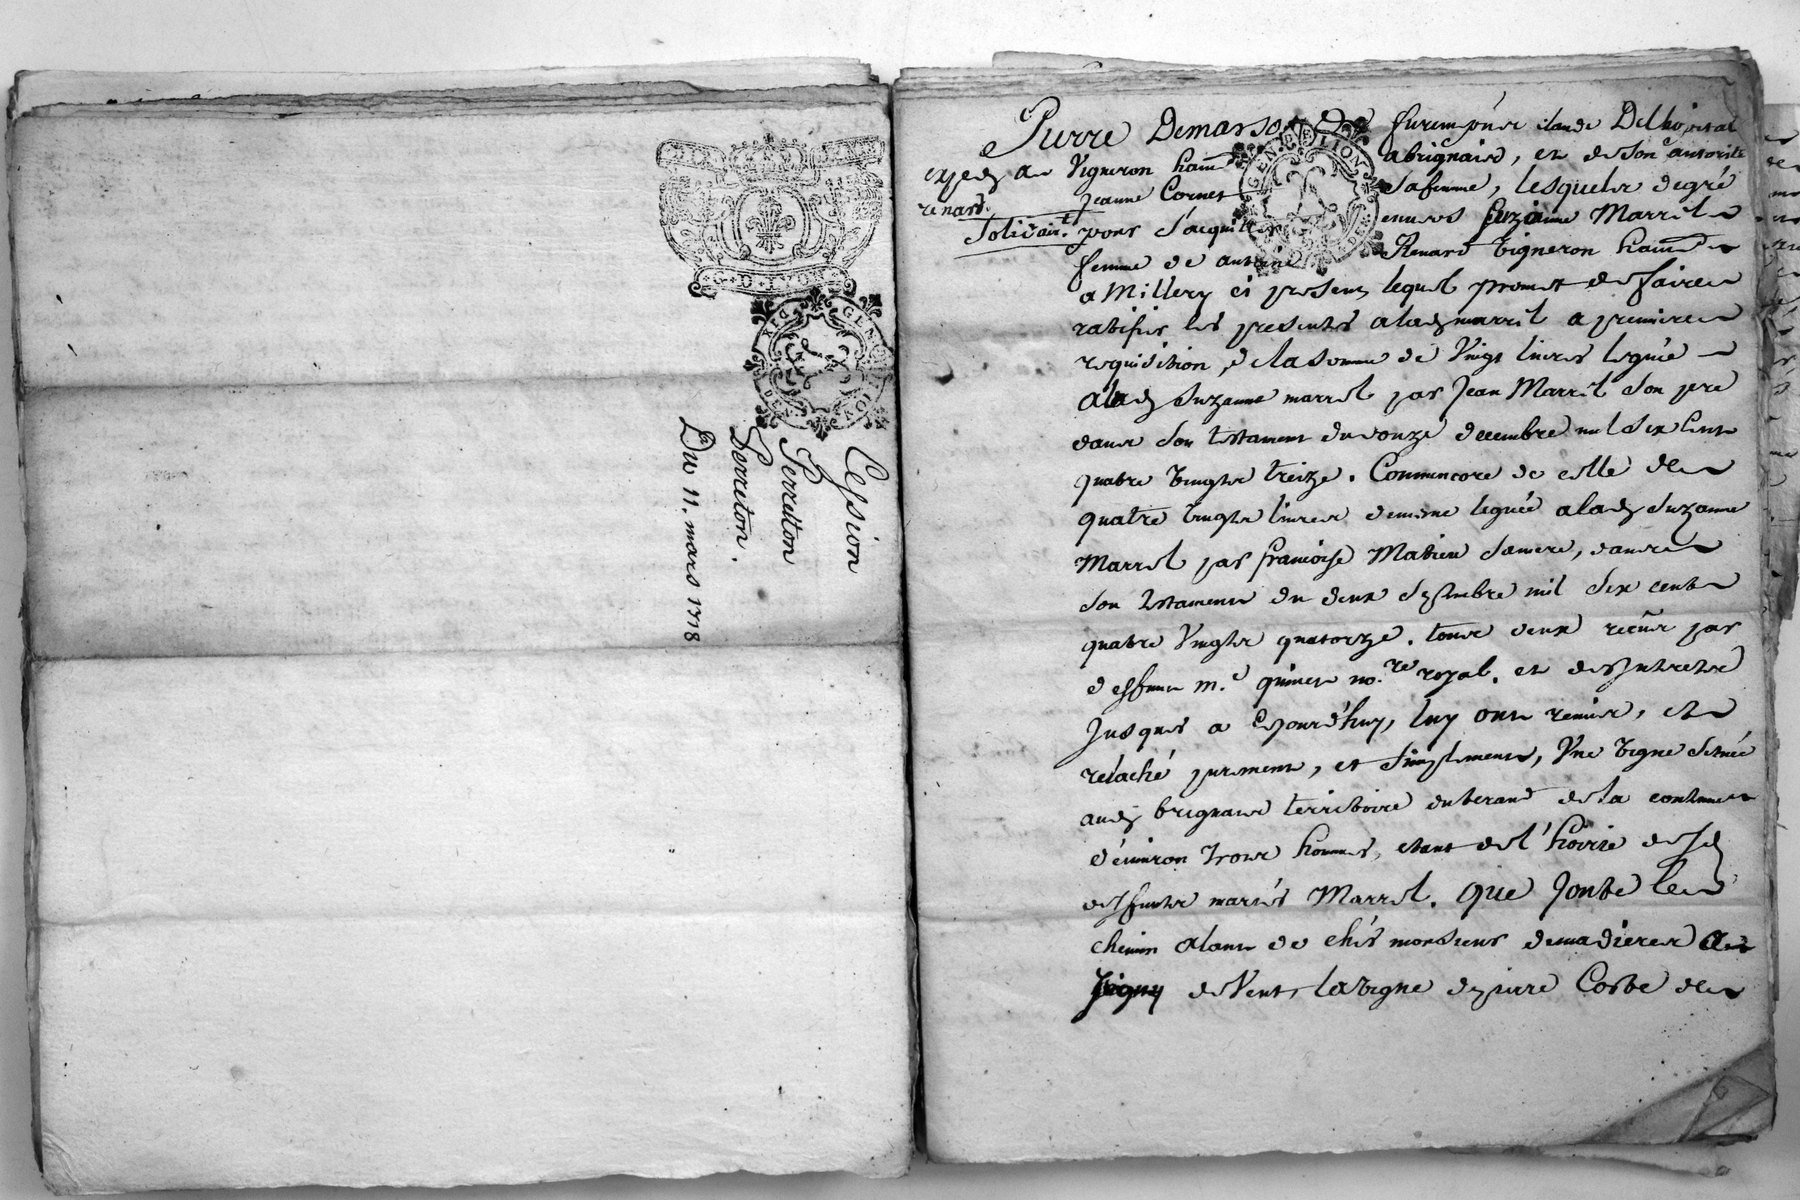 Cession
Perretton
Perreton.
Du 11. mars 1718
GEN
DIX DEN
Pierre Demars furent pnts claude Delhopital
Vigneron habit abrignais, et de son autorité
exped au
renard.
Jeanne Cornet sa femme, lesquels de gré
Solidairt pour s'acquitter envers Suzanne Marrel
femme de antoine Renard Vigneron habit
a Millery ci present, lequel promet de faire
ratifier les presentes alad marrel a premiere
requisition, de la somme de Vingt livres leguée
alad Suzanne marrel par Jean Marrel son pere
dans son testament du onze decembre mil six cent
quatre vingts treize. Comm'encore de celle de
quatre vingts livres demême leguée alad Suzanne
Marrel par francoise Matieu sa mere, dans
son testament du deux decembre mil six cents
quatre Vingts quatorze. tous deux reçûs par
deffunt m.e quinet no.re royal. et des Interets
jusques a cejourd'huy, luy ont remis, et
relaché purement, et simplement, Vne vigne située
aud brignais territoire du berand de la contenue
d'environ trois hommes, etant de l'hoirie desd
deffunts mariés Marrel. que Joute le
chemin alant de chés monsieur demadieres a
de Vent, la vigne de pierre Coste de
GEN DE LION